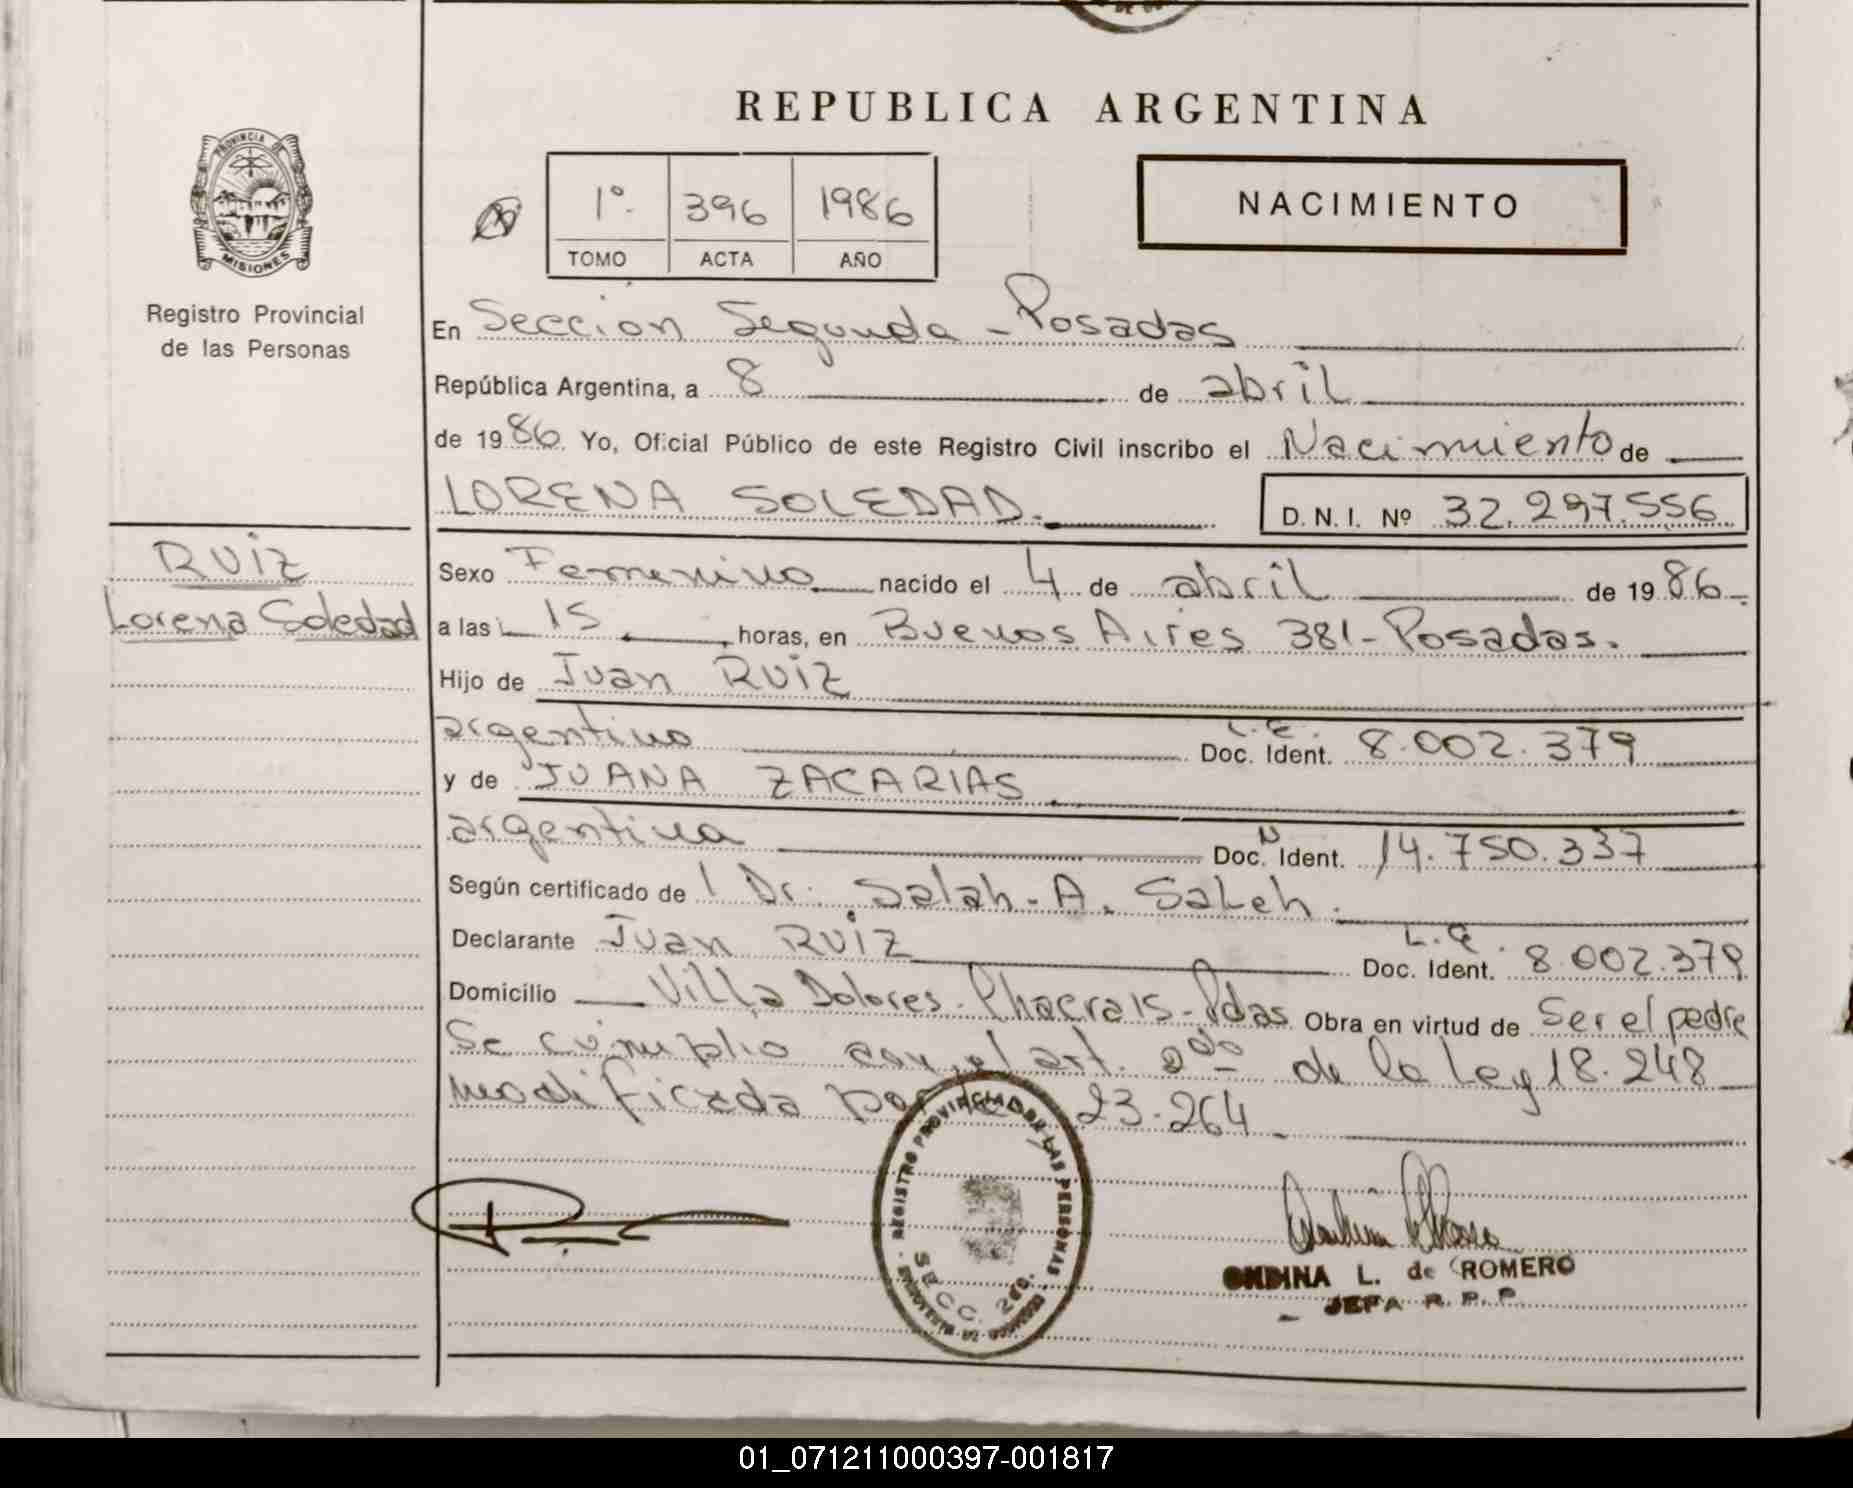 REPUBLICA ARGENTINA
PROVINCIA DE
MISIONES
Registro Provincial
de las Personas
1º. 396 1986
TOMO ACTA AÑO
NACIMIENTO
En Sección Segunda - Posadas
República Argentina, a 8 de abril
de 1986. Yo, Oficial Público de este Registro Civil inscribo el Nacimiento de
LORENA SOLEDAD.
D.N.I. Nº 32.297.556
RUIZ
Lorena Soledad
Sexo Femenino nacido el 4 de abril de 1986
a las 15 horas, en Buenos Aires 381 - Posadas.
Hijo de Juan RUIZ
argentino L.E. Doc. Ident. 8.002.379
y de JUANA ZACARIAS
argentina Doc. Ident. 14.750.337
Según certificado de l Dr. Salah - A. Saleh.
Declarante Juan RUIZ L.E. Doc. Ident. 8.002.379
Domicilio Villa Dolores - Chacra 15 - Pdas. Obra en virtud de Ser el padre
Se cumplio con el art. 2do de la Ley 18.248
modificada por 23.264
REGISTRO PROVINCIAL DE LAS PERSONAS
SECC. 2da.
ONDINA L. de ROMERO
JEFA R. P. P.
01_071211000397-001817